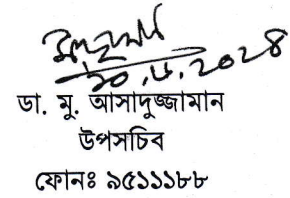 ১০.৬.২০২৪
ডা. মু. আসাদুজ্জামান
উপসচিব
ফোনঃ ৯৫১১১৮৮